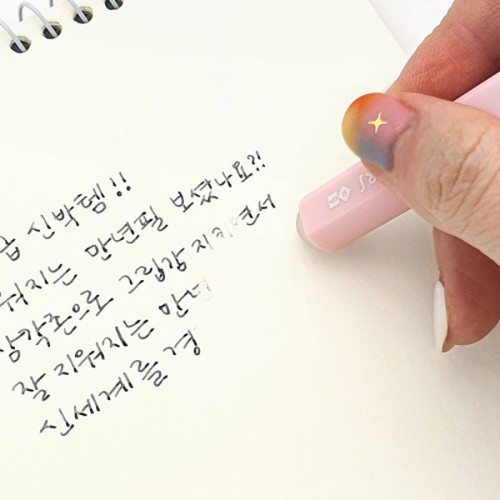 신박템!!
워지는 만년필 보셨나요?!
삼각존으로 그립감 지키면서
잘 지워지는 만년
신세계를 경